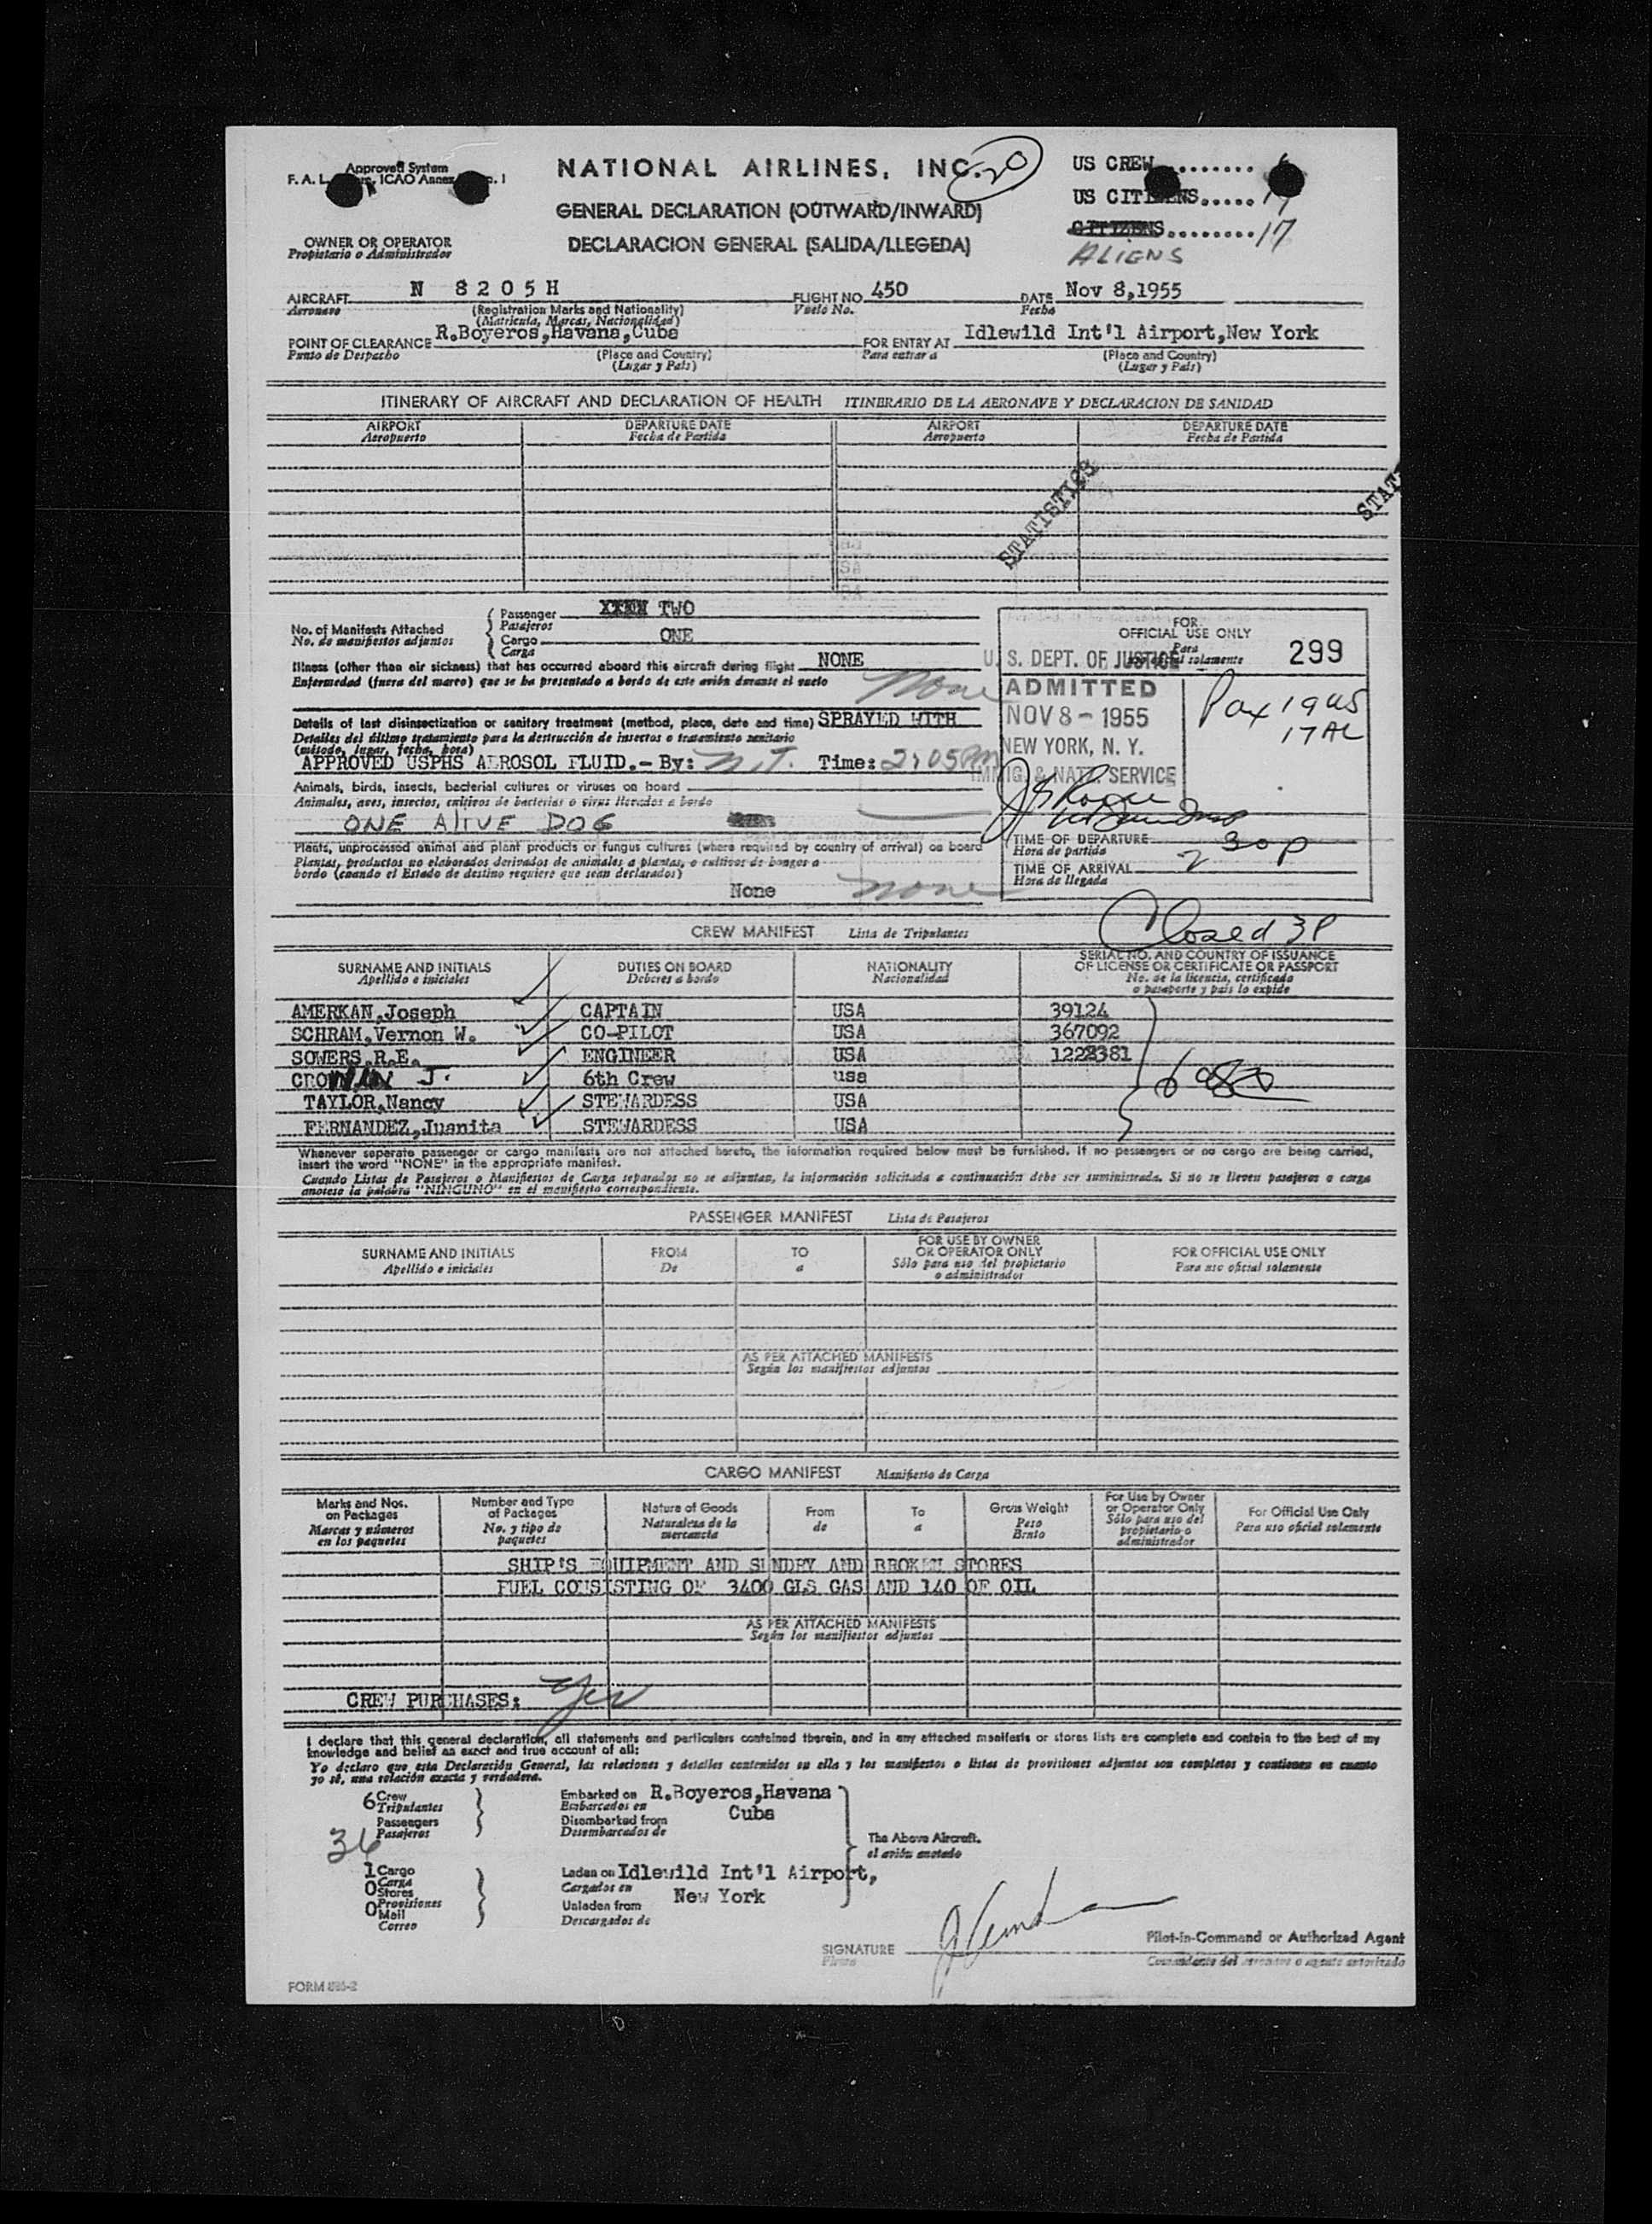 Approved System
F. A. L. ICAO Annex . I
NATIONAL AIRLINES, INC.
20
GENERAL DECLARATION (OUTWARD/INWARD)
DECLARACION GENERAL (SALIDA/LLEGEDA)
US CREW.........
US CITIZENS.....
CITIZENS........17
ALIENS
OWNER OR OPERATOR
Propietario o Administrador
AIRCRAFT N 8205H FLIGHT NO. 450 DATE Nov 8,1955
Aeronave (Registration Marks and Nationality) Vuelo No. Fecha
(Matricula, Marcas, Nacionalidad)
POINT OF CLEARANCE R.Boyeros,Havana,Cuba FOR ENTRY AT Idlewild Int'l Airport,New York
Punto de Despacho (Place and Country) Para entrar a (Place and Country)
(Lugar y Pais) (Lugar y Pais)
ITINERARY OF AIRCRAFT AND DECLARATION OF HEALTH ITINERARIO DE LA AERONAVE Y DECLARACION DE SANIDAD
AIRPORT DEPARTURE DATE AIRPORT DEPARTURE DATE
Aeropuerto Fecha de Partida Aeropuerto Fecha de Partida
STATISTICS
STAT
No. of Manifests Attached
No. de manifiestos adjuntos
Passenger TWO
Pasajeros
Cargo ONE
Carga
Illness (other than air sickness) that has occurred aboard this aircraft during flight NONE
Enfermedad (fuera del mareo) que se ha presentado a bordo de este avión durante el vuelo
None
Details of last disinsectization or sanitary treatment (method, place, date and time) SPRAYED WITH
Detalles del último tratamiento para la destrucción de insectos o tratamiento sanitario
(método, lugar, fecha, hora)
APPROVED USPHS AEROSOL FLUID.- By: N.T. Time: 2:05PM
Animals, birds, insects, bacterial cultures or viruses on board
Animales, aves, insectos, cultivos de bacterias o virus llevados a bordo
ONE ALIVE DOG
Plants, unprocessed animal and plant products or fungus cultures (where required by country of arrival) on board
Plantas, productos no elaborados derivados de animales a plantas, o cultivos de hongos a
bordo (cuando el Estado de destino requiere que sean declarados)
None none
FOR
OFFICIAL USE ONLY
Para
solamente
299
U. S. DEPT. OF JUSTICE
ADMITTED
NOV 8 - 1955
NEW YORK, N. Y.
IMMIG. & NATZ. SERVICE
Pax 19 US
17 AL
TIME OF DEPARTURE
Hora de partida
TIME OF ARRIVAL 2 30 P
Hora de llegada
Closed 3P
CREW MANIFEST Lista de Tripulantes
SURNAME AND INITIALS DUTIES ON BOARD NATIONALITY SERIAL NO. AND COUNTRY OF ISSUANCE
Apellido e iniciales Deberes a bordo Nacionalidad OF LICENSE OR CERTIFICATE OR PASSPORT
No. de la licencia, certificado
o pasaporte y país lo expide
AMERKAN,Joseph CAPTAIN USA 39124
SCHRAM,Vernon W. CO-PILOT USA 367092
SOWERS,R.E. ENGINEER USA 1228381
CRONIN J. 6th Crew usa
TAYLOR,Nancy STEWARDESS USA
FERNANDEZ,Juanita STEWARDESS USA
Whenever seperate passenger or cargo manifests are not attached hereto, the information required below must be furnished. If no passengers or no cargo are being carried,
insert the word "NONE" in the appropriate manifest.
Cuando Listas de Pasajeros o Manifiestos de Carga separados no se adjuntan, la información solicitada a continuación debe ser suministrada. Si no se lleven pasajeros o carga
anotese la palabra "NINGUNO" en el manifiesto correspondiente.
PASSENGER MANIFEST Lista de Pasajeros
SURNAME AND INITIALS FROM TO FOR USE BY OWNER FOR OFFICIAL USE ONLY
Apellido e iniciales De a OR OPERATOR ONLY Para uso oficial solamente
Sólo para uso del propietario
o administrador
AS PER ATTACHED MANIFESTS
Según los manifiestos adjuntos
CARGO MANIFEST Manifiesto de Carga
Marks and Nos. Number and Type Nature of Goods From To Gross Weight For Use by Owner For Official Use Only
on Packages of Packages Naturaleza de la de a Peso or Operator Only Para uso oficial solamente
Marcas y números No. y tipo de mercancia Bruto Sólo para uso del
en los paquetes paquetes propietario o
administrador
SHIP'S EQUIPMENT AND SUNDRY AND BROKEN STORES
FUEL CONSISTING OF 3400 GLS GAS AND 140 OF OIL
AS PER ATTACHED MANIFESTS
Según los manifiestos adjuntos
CREW PURCHASES: yes
I declare that this general declaration, all statements and particulars contained therein, and in any attached manifests or stores lists are complete and contain to the best of my
knowledge and belief an exact and true account of all:
Yo declaro que esta Declaración General, las relaciones y detalles contenidos en ella y los manifiestos o listas de provisiones adjuntos son completos y contienen en cuanto
yo sé, una relación exacta y verdadera.
6 Crew
Tripulantes
Passengers
Pasajeros
36
Embarked on R.Boyeros,Havana
Embarcados en Cuba
Disembarked from
Desembarcados de
The Above Aircraft.
el avión anotado
1 Cargo
Carga
0 Stores
Provisiones
0 Mail
Correo
Laden on Idlewild Int'l Airport,
Cargados en New York
Unladen from
Descargados de
SIGNATURE Pilot-in-Command or Authorized Agent
Firma Comandante del aeronave o agente autorizado
FORM